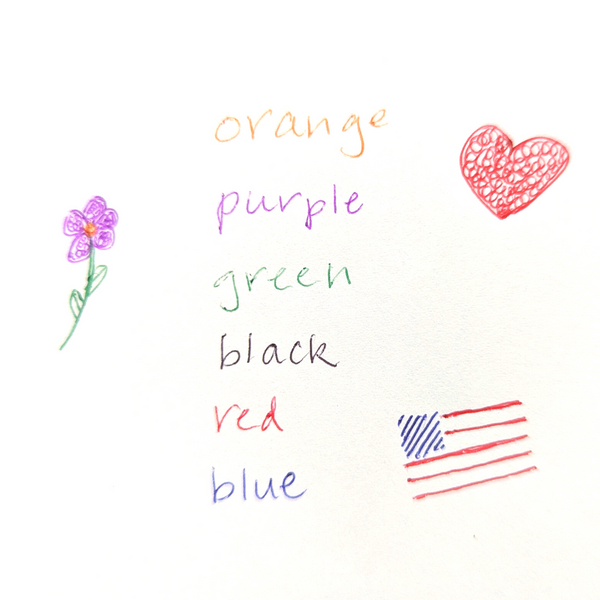 orange
purple
green
black
red
blue